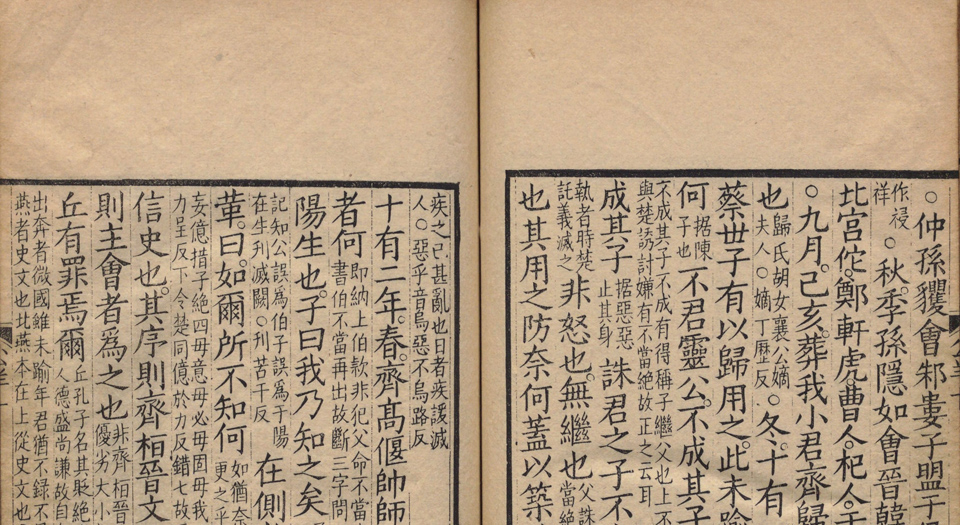 ○仲孫貜會邾婁子盟于
作祲
祥
○秋季孫隱如會晉韓
北宮佗鄭軒虎曹人杞人于
○九月己亥葬我小君齊歸
歸氏胡女襄公嫡
也夫人○嫡丁歷反○冬十有
蔡世子有以歸用之此未踰
何
据陳
子也
不君靈公不成其子
不成其子不成有得稱子繼父也上不
與楚誘討嫌有不當絕故正之云耳
成其子
据惡惡
止其身
誅君之子不
執者時楚
託義滅之
非怒也無繼也
父誅
當絕
也其用之防奈何蓋以築
疾之已甚亂也曰者疾諼滅
人○惡乎音烏惡不烏路反
十有二年春齊高偃帥師
者何
即納上伯款非犯父命不當
書伯不當再出故斷三字問
陽生也子曰我乃知之矣
記知公誤為伯子誤為于陽
在生刋滅闕○刋苦干反
在側
革曰如爾所不知何
如猶奈
更之乎
妄億措子絕四毋意毋必毋固毋我
力呈反下令楚同億於力反錯七故
信史也其序則齊桓晉文
則主會者為之也
非齊桓晉
優劣大小
丘有罪焉爾
丘孔子名其貶絕
人德盛尚謙故自
出奔者微國雖未踰年君猶不錄不
燕者史文也北燕本在上從史文也